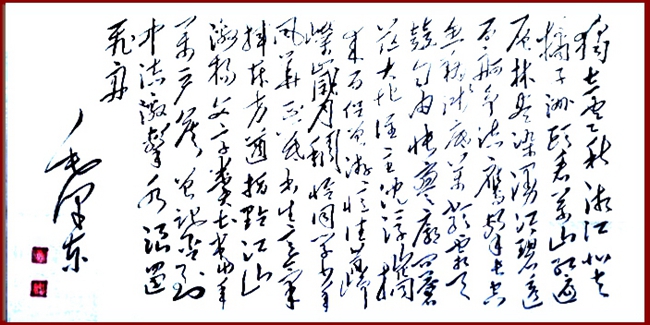 獨立寒秋湘江北去
橘子洲頭看萬山紅遍
層林盡染漫江碧透
百舸爭流鷹擊長空
魚翔淺底萬類霜天
競自由悵寥廓問蒼
茫大地誰主沉浮攜
來百侶曾游憶往昔崢
嶸歲月稠恰同學少年
風華正茂書生意氣
揮斥方遒指點江山
激揚文字糞土當年
萬戶侯曾記否到
中流激擊水浪遏
飛舟
毛澤東